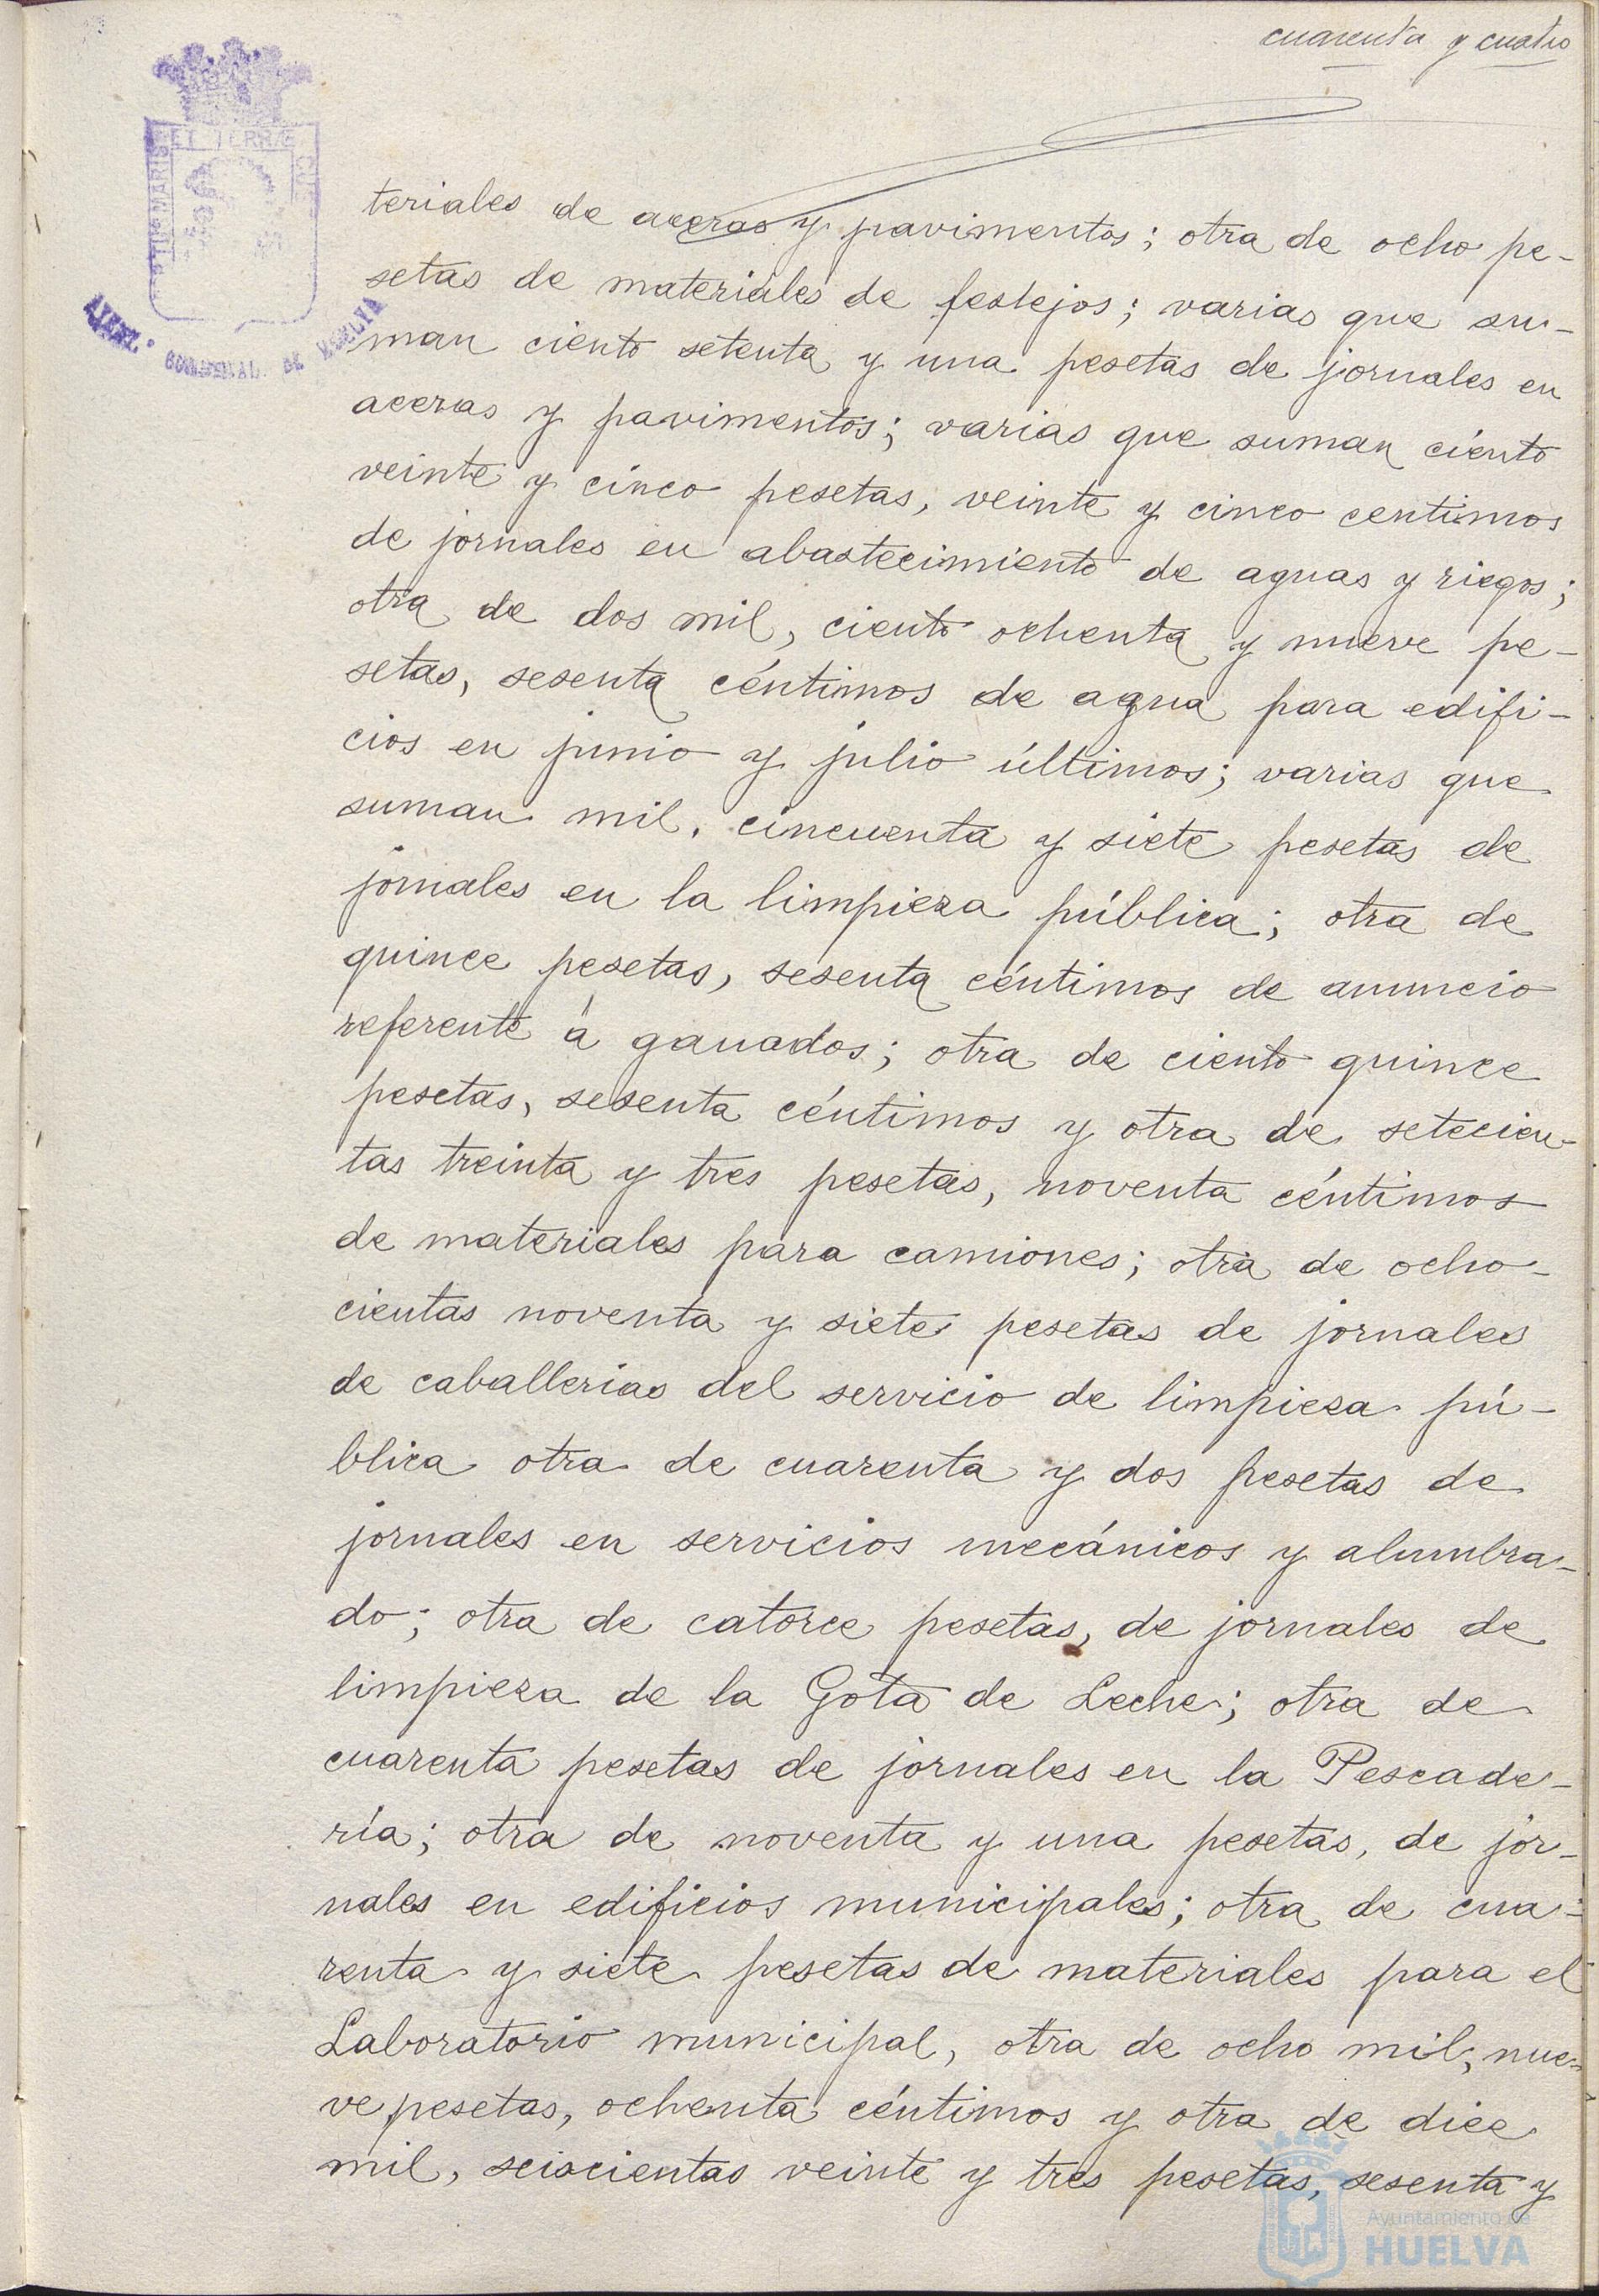 cuarenta y cuatro
ET TERRÆ CU
MARIS
HUELVA
teriales de aceras y pavimentos; otra de ocho pe-
setas de materiales de festejos; varias que su-
man ciento setenta y una pesetas de jornales en
aceras y pavimentos; varias que suman ciento
veinte y cinco pesetas, veinte y cinco centimos
de jornales en abastecimiento de aguas y riegos;
otra de dos mil, ciento ochenta y nueve pe-
setas, sesenta céntimos de agua para edifi-
cios en junio y julio últimos; varias que
suman mil, cincuenta y siete pesetas de
jornales en la limpieza pública; otra de
quince pesetas, sesenta céntimos de anuncio
referente á ganados; otra de ciento quince
pesetas, sesenta céntimos y otra de setecien-
tas treinta y tres pesetas, noventa céntimos
de materiales para camiones; otra de ocho-
cientas noventa y siete pesetas de jornales
de caballerias del servicio de limpieza pú-
blica otra de cuarenta y dos pesetas de
jornales en servicios mecánicos y alumbra-
do; otra de catorce pesetas, de jornales de
limpieza de la Gota de Leche; otra de
cuarenta pesetas de jornales en la Pescade-
ría; otra de noventa y una pesetas, de jor-
nales en edificios municipales; otra de cua-
renta y siete pesetas de materiales para el
Laboratorio municipal, otra de ocho mil, nue-
ve pesetas, ochenta céntimos y otra de diez
mil, seiscientas veinte y tres pesetas, sesenta y
Ayuntamiento de
HUELVA